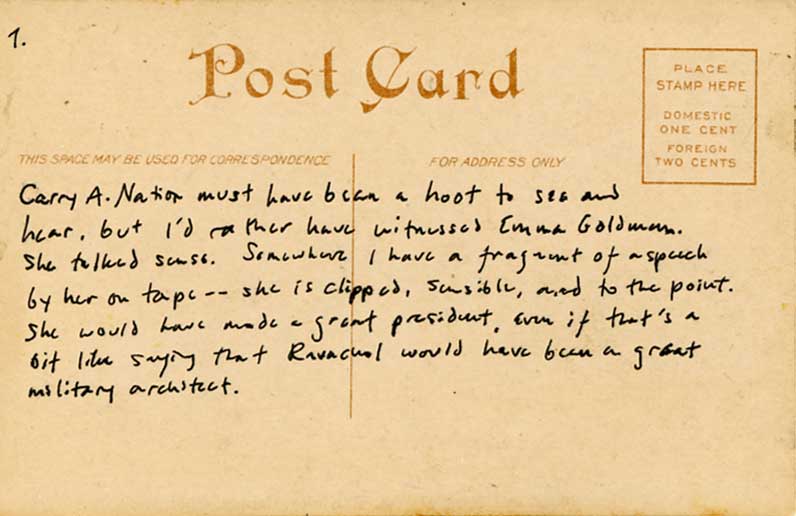 1.
Post Card
PLACE
STAMP HERE
DOMESTIC
ONE CENT
FOREIGN
TWO CENTS
THIS SPACE MAY BE USED FOR CORRESPONDENCE
FOR ADDRESS ONLY
Carry A. Nation must have been a hoot to see and
hear, but I'd rather have witnessed Emma Goldman.
She talked sense. Somewhere I have a fragment of a speech
by her on tape -- she is clipped, sensible, and to the point.
She would have made a great president, even if that's a
bit like saying that Ravachol would have been a great
military architect.